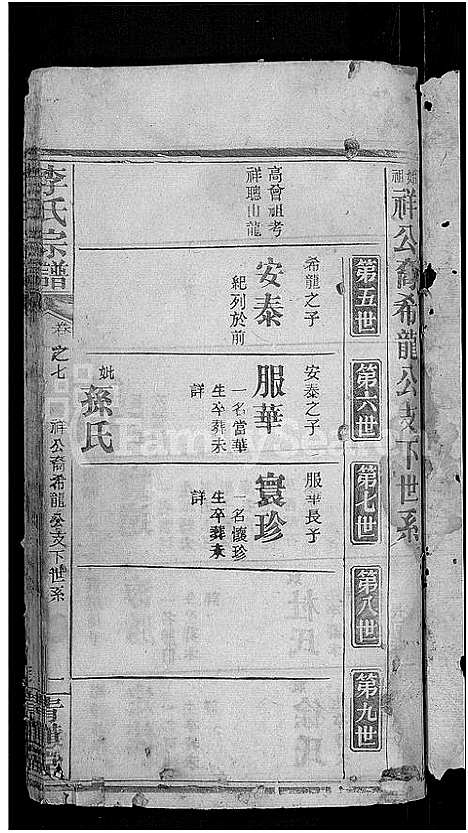 始祖祥公裔希龍公支下世系
第五世
第六世
第七世
第八世
第九世
高曾祖考
祥聰山龍
希龍之子
安泰
紀列於前
安泰之子
服華
一名當華
生卒葬未
詳
妣孫氏
服華長子
寰珍
一名懷珍
生卒葬未
詳
李氏宗譜
卷之七
祥公裔希龍公支下世系
一
FamilySearch